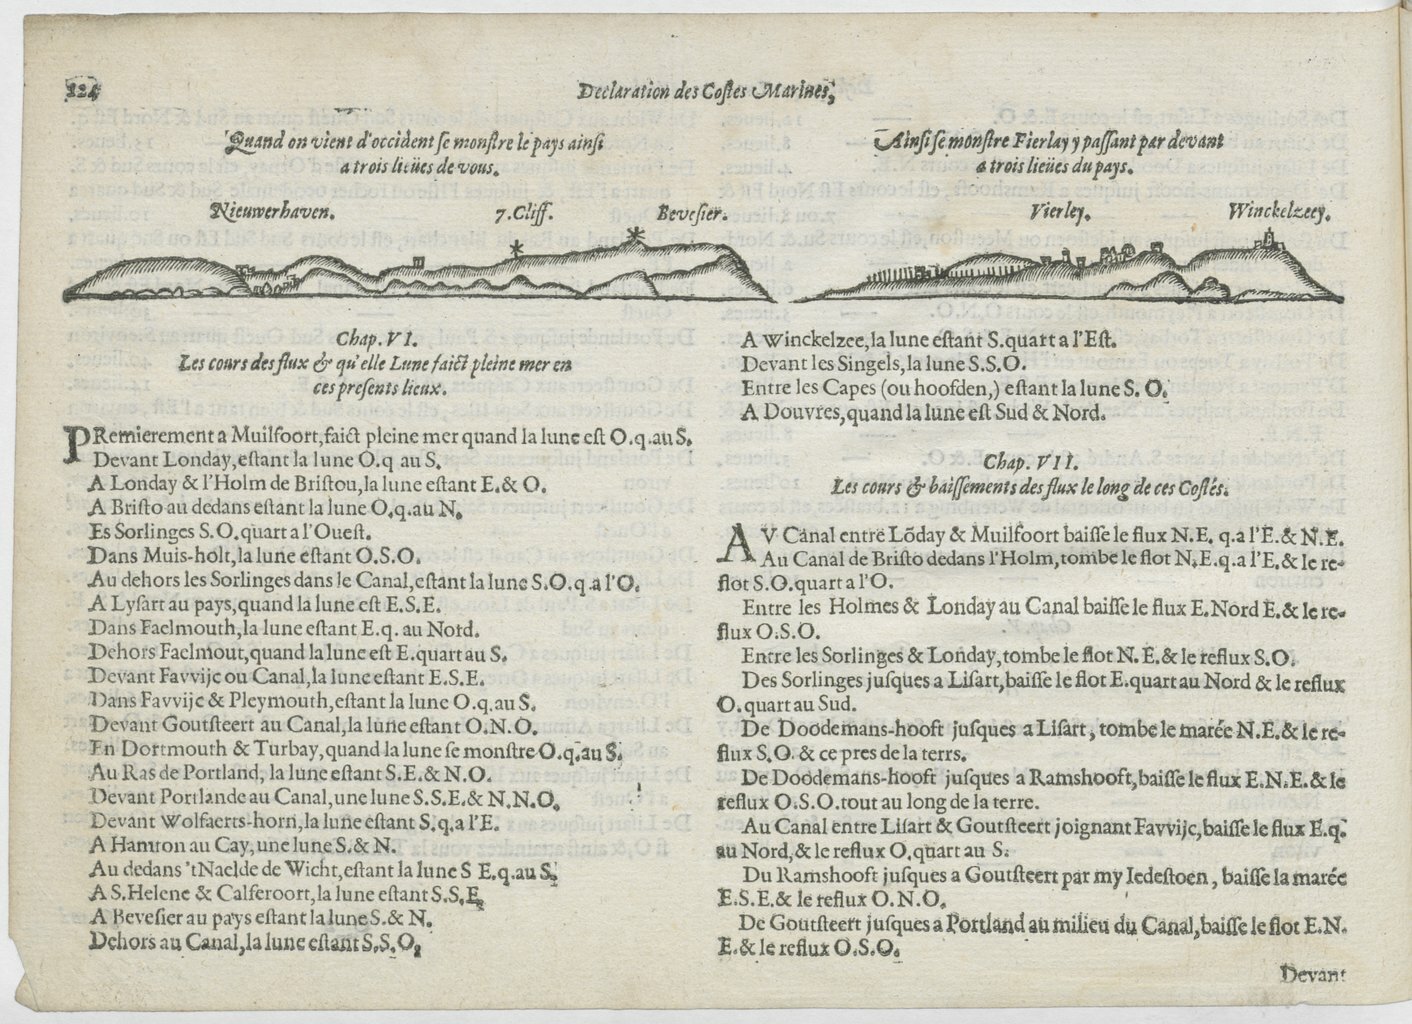 124
Declaration des Costes Marines,
Quand on vient d'occident se monstre le pays ainsi
a trois lieües de vous.
Nieuwerhaven. 7. Cliff. Bevesier.
Chap. VI.
Les cours des flux & qu'elle Lune faict pleine mer en
ces presents lieux.
PRemierement a Muilfoort, faict pleine mer quand la lune est O.q.au S.
Devant Londay, estant la lune O.q au S.
A Londay & l'Holm de Bristou, la lune estant E. & O.
A Bristo au dedans estant la lune O.q.au N.
Es Sorlinges S.O. quart a l'Ouest.
Dans Muis-holt, la lune estant O.S.O.
Au dehors les Sorlinges dans le Canal, estant la lune S.O.q.a l'O.
A Lysart au pays, quand la lune est E.S.E.
Dans Faelmouth, la lune estant E.q. au Nord.
Dehors Faelmout, quand la lune est E.quart au S.
Devant Favvijc ou Canal, la lune estant E.S.E.
Dans Favvijc & Pleymouth, estant la lune O.q.au S.
Devant Goutsteert au Canal, la lune estant O.N.O.
En Dortmouth & Turbay, quand la lune se monstre O.q.au S.
Au Ras de Portland, la lune estant S.E.& N.O.
Devant Portlande au Canal, une lune S.S.E.& N.N.O.
Devant Wolfaerts-horn, la lune estant S.q.a l'E.
A Hamton au Cay, une lune S.& N.
Au dedans 'tNaelde de Wicht, estant la lune S E.q.au S.
A S.Helene & Calferoort, la lune estant S.S.E.
A Bevesier au pays estant la lune S.& N.
Dehors au Canal, la lune estant S.S.O.
Ainsi se monstre Fierlay y passant par devant
a trois lieües du pays.
Vierley. Winckelzeey.
A Winckelzee, la lune estant S.quart a l'Est.
Devant les Singels, la lune S.S.O.
Entre les Capes (ou hoofden,) estant la lune S. O.
A Douvres, quand la lune est Sud & Nord.
Chap. VII.
Les cours & baissements des flux le long de ces Costés.
AV Canal entre Lõday & Muilfoort baisse le flux N.E. q.a l'E.& N.E.
Au Canal de Bristo dedans l'Holm, tombe le flot N.E.q.a l'E,& le re-
flot S.O.quart a l'O.
Entre les Holmes & Londay au Canal baisse le flux E.Nord E.& le re-
flux O.S.O.
Entre les Sorlinges & Londay, tombe le flot N. E.& le reflux S.O.
Des Sorlinges jusques a Lisart, baisse le flot E.quart au Nord & le reflux
O.quart au Sud.
De Doodemans-hooft jusques a Lisart, tombe le marée N.E.& le re-
flux S.O. & ce pres de la terrs.
De Doodemans-hooft jusques a Ramshooft, baisse le flux E.N.E.& le
reflux O.S.O. tout au long de la terre.
Au Canal entre Lisart & Goutsteert joignant Favvijc, baisse le flux E.q.
au Nord, & le reflux O.quart au S.
Du Ramshooft jusques a Goutsteert par my Iedestoen, baisse la marée
E.S.E.& le reflux O.N.O.
De Goutsteert jusques a Portland au milieu du Canal, baisse le flot E.N.
E.& le reflux O.S.O.
Devant